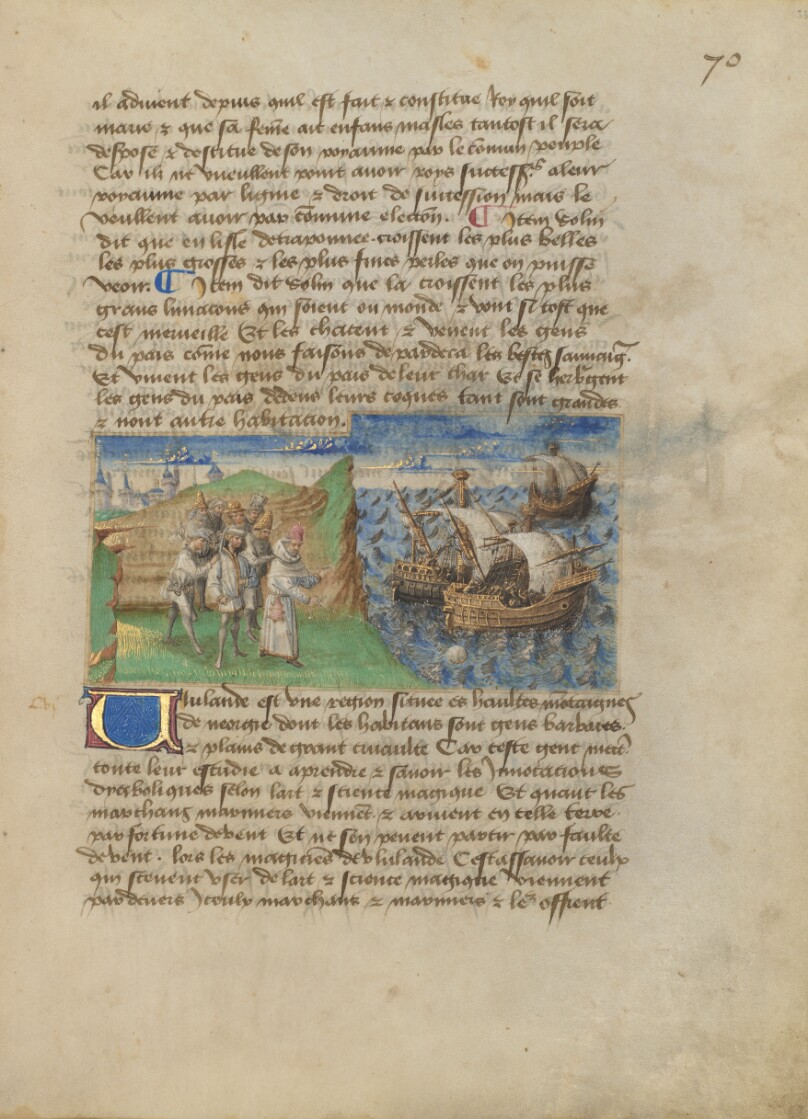 70
il advient depuis quil est fait & constitue Roy quil soit
marie & que sa feme ait enfans masles tantost il sera
despose & destitue de son royaume par le comun peuple
Car ilz ne vueullent point avoir roys success.rs a leur
royaume par lignie & droit de succession mais le
veullent avoir par comune election. ¶ Item Solin
dit que en lisle de traponnee croissent les plus belles
les plus grosses & les plus fines perles que on puisse
veoir. ¶ Item dit Solin que la croissent les plus
grans limacons qui soient ou monde & vont si tost que
cest merveille Et les chacent & venent les gens
du pais come nous faisons de pardeca les bestes sauvaig.
Et vivent les gens du pais de leur char Et se herbgent
les gens du pais dedens leurs coques tant sont grandes
& nont autre habitacion.
Uulande est une region situee es haultes motaignes
de neorgie dont les habitans sont gens barbares
& plains de grant cruaulte Car ceste gent mect
toute leur estudie a aprendre & savoir les Invocations
dyaboliques selon lart & science magique Et quant les
marchans mariniers viennet & arivent en celle terre
par fortune de vent Et ne sen peuent partir par faulte
de vent. lors les magiciens de vlulande Cestassavoir ceulx
qui scevent user de lart & science magique viennent
par devers Iceulx marchans & mariniers & les offrent